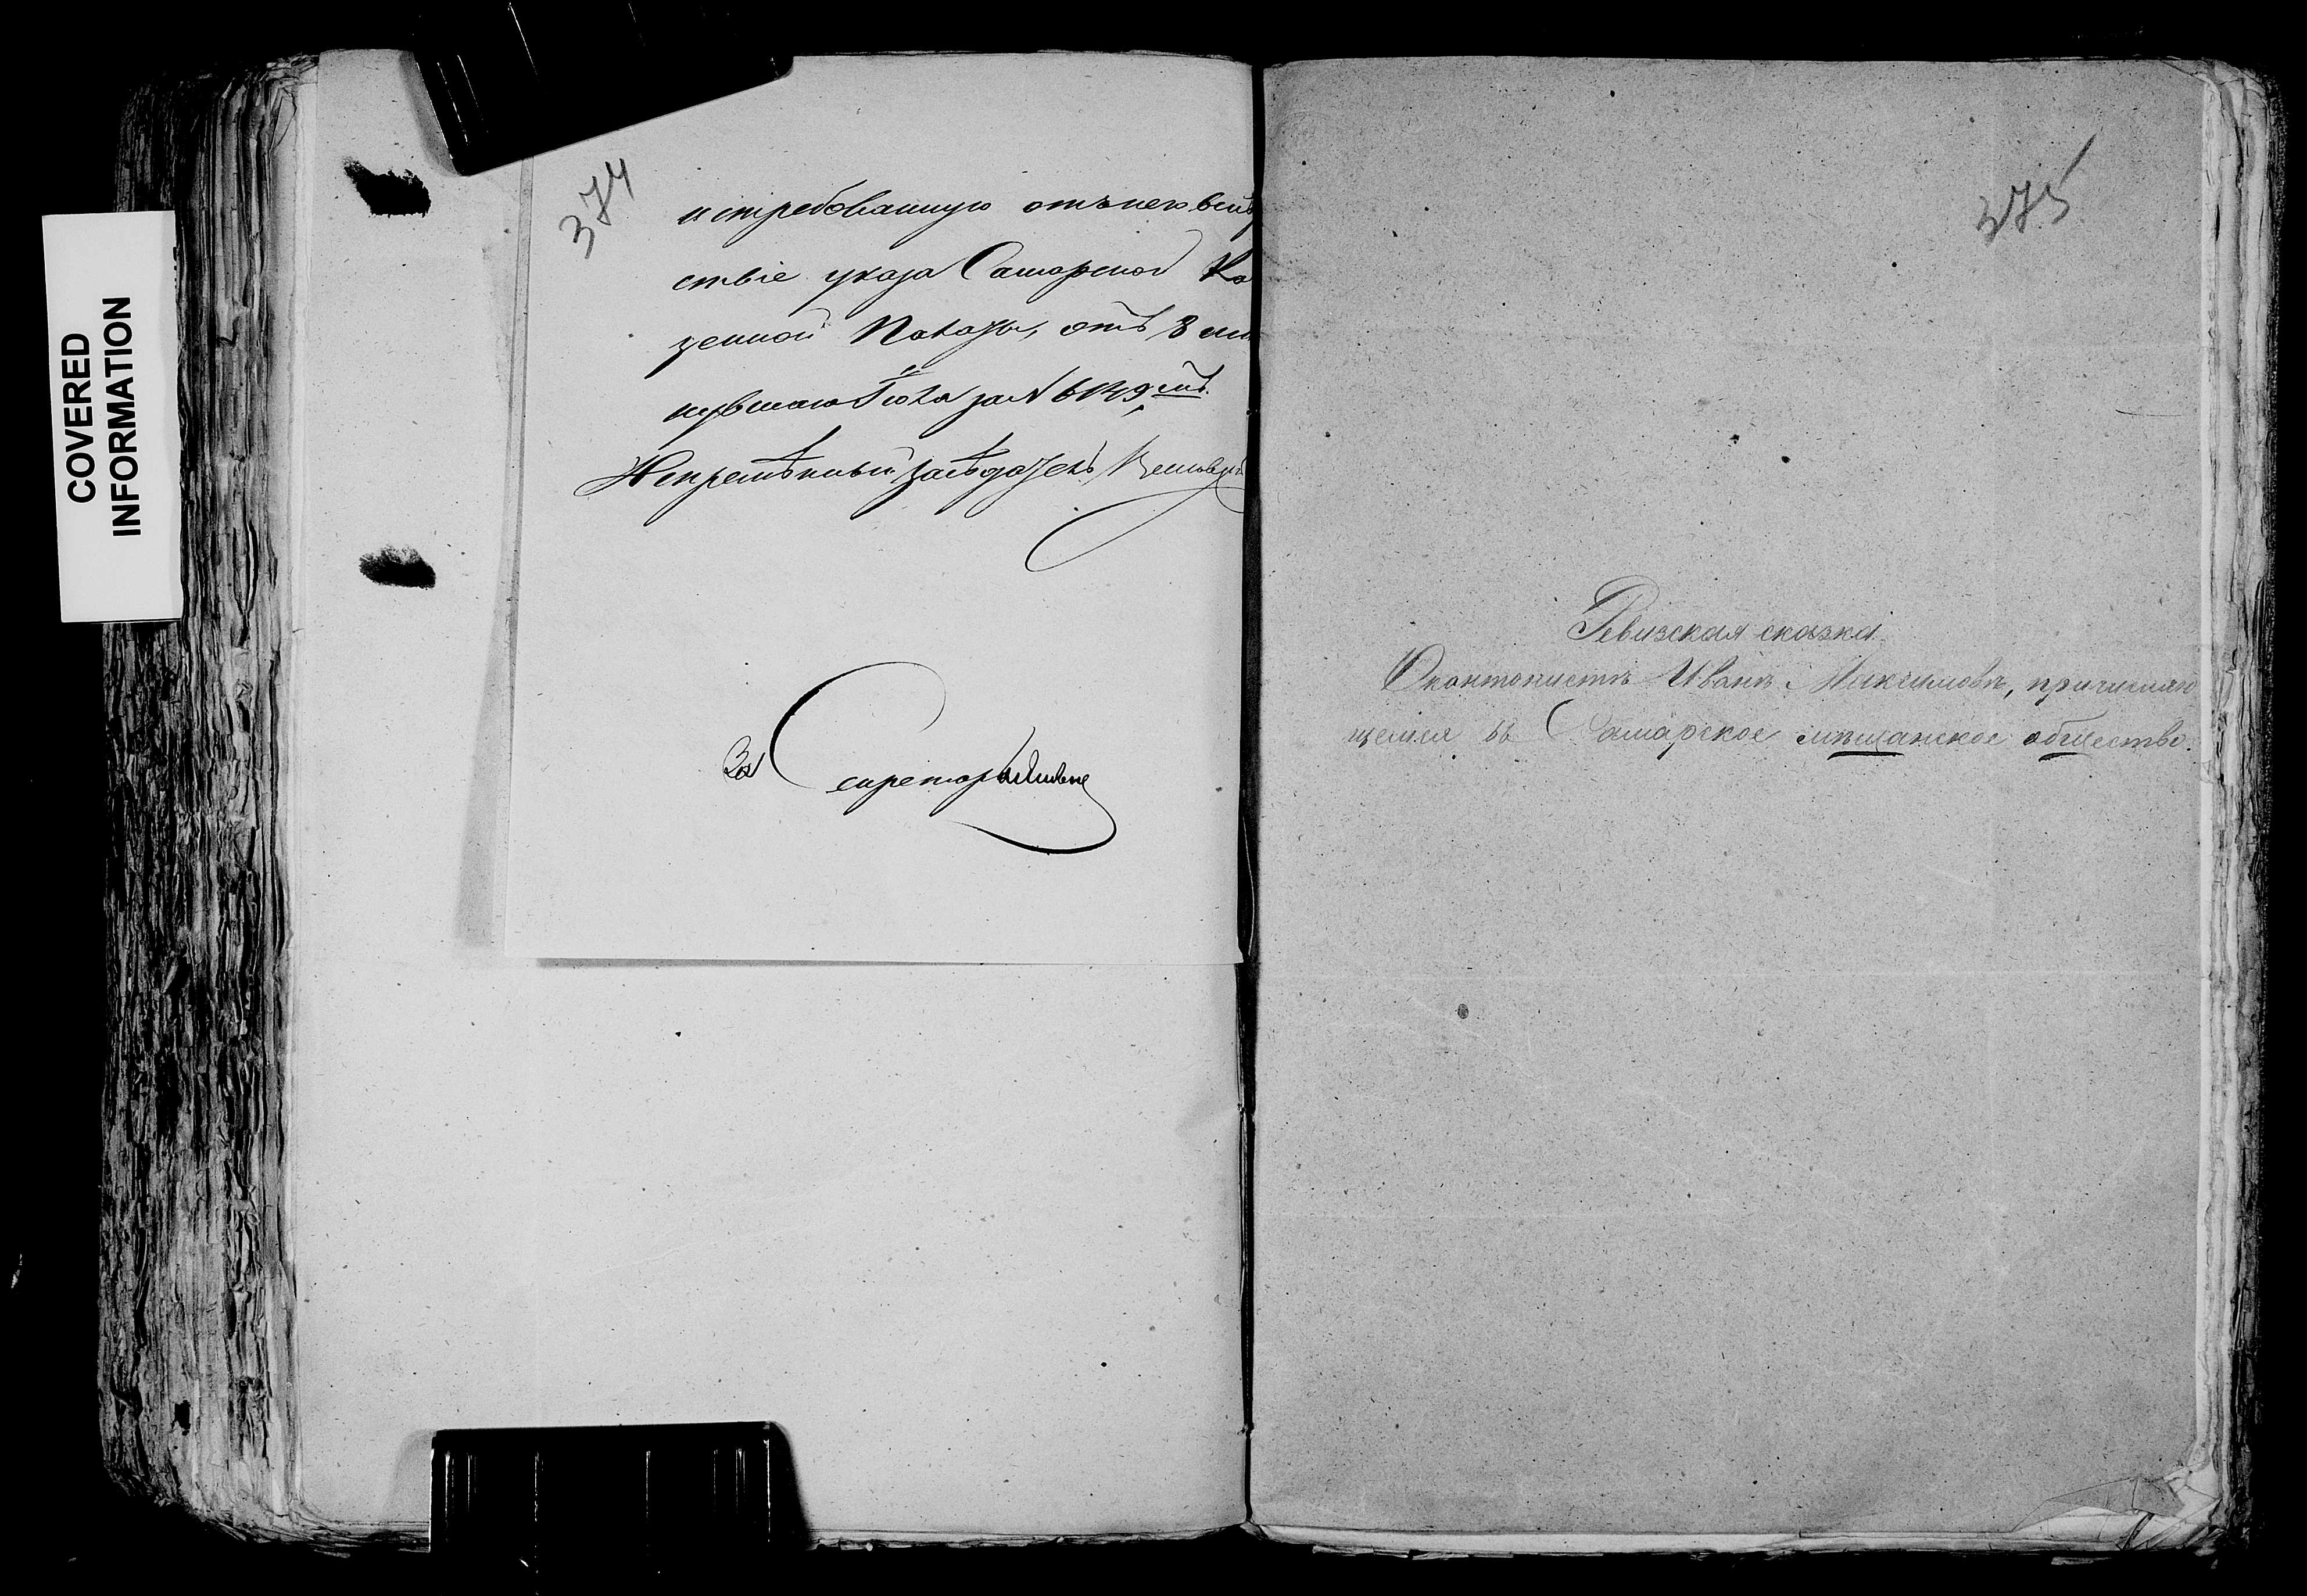 COVERED
INFORMATION
374
истребованную отъ него вслѣд
ствіе указа Самарской Ка
зенной Палаты, отъ 8 ми
нувшаго Іюля за N 6149
Непремѣнный засѣдатель
За Секретаря
375
Ревизская сказка.
Оконтописть Иванъ Максимовъ, причисляю
щемся въ Самарское мѣщанское общество.